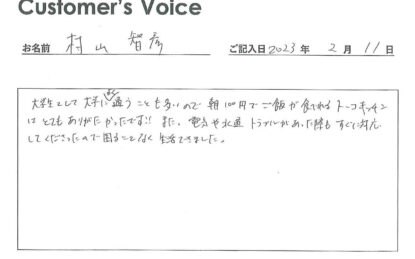 Customer's Voice
お名前 村山 智彦 ご記入日 2023 年 2 月 11 日
大学生として 大学に通うことも多いので 朝100円でご飯が食べれるトーコーキッチン
はとてもありがたかったです!! また、電気や水道トラブルがあった際もすぐに対応
してくださったので困ることなく生活できました。